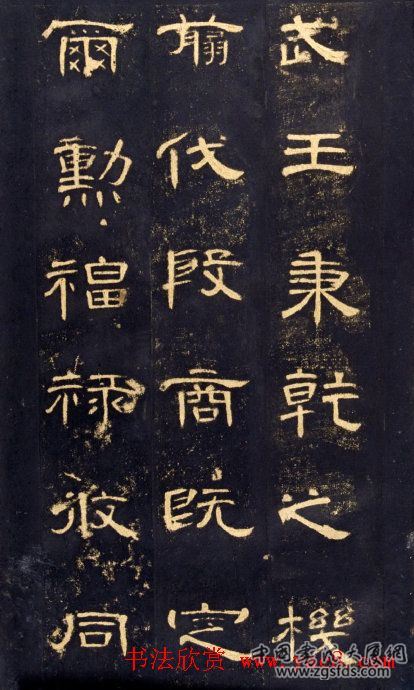 武王秉乾之機
翦伐殷商既定
爾勳福祿攸同
书法欣赏
www.zgsfds.com